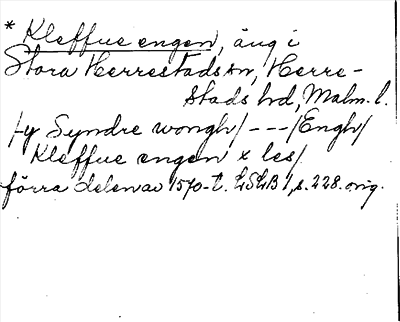 * Kleffue engen, äng i
Stora Herrestads sn, Herre-
stads hd, Malm. l.
/y Syndre wongh/ --- /Engh/
Kleffue engen x les/
förra delen av 1570-t. LSLB 1, s. 228. orig.